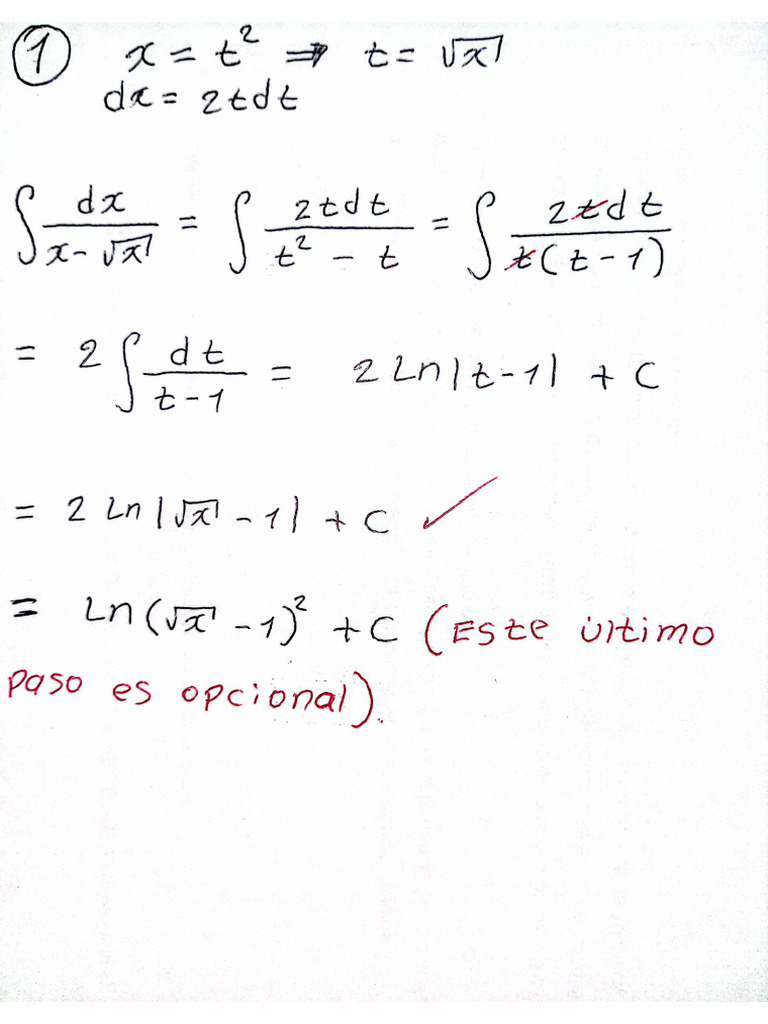 ① x = t² ⇒ t = √x
dx = 2tdt
∫ dx/(x - √x) = ∫ 2tdt/(t² - t) = ∫ 2tdt/(t(t - 1))
= 2 ∫ dt/(t - 1) = 2 Ln|t - 1| + C
= 2 Ln|√x - 1| + C ✓
= Ln(√x - 1)² + C (Este último
paso es opcional).